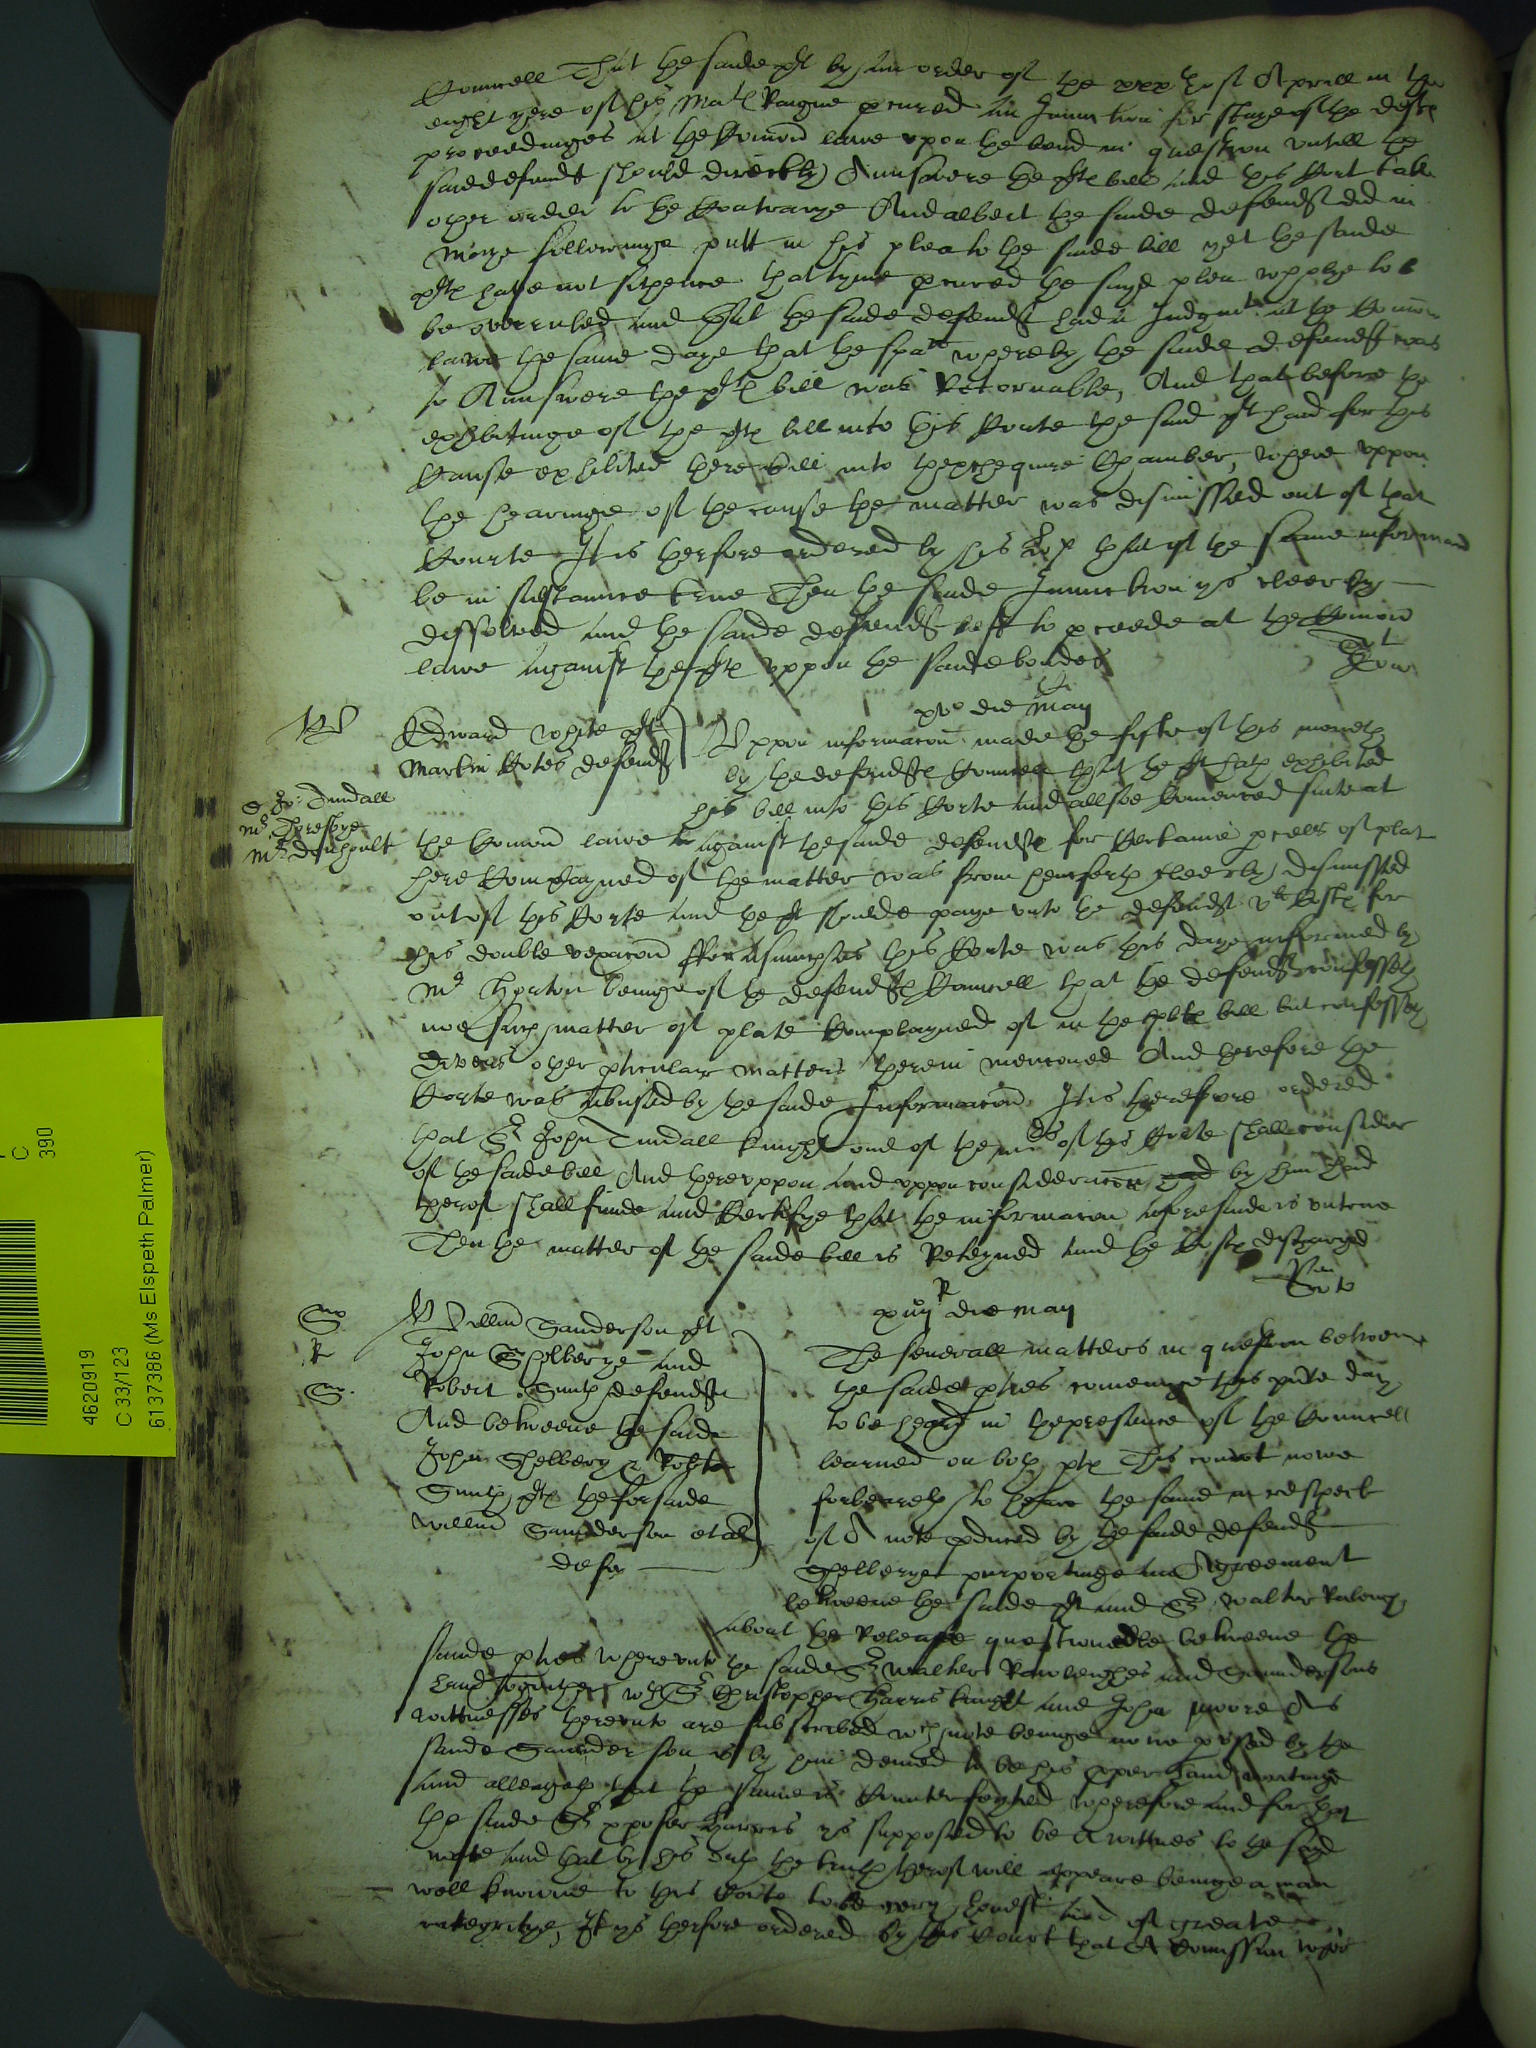 Councell That the saide plt by an order of the xxxth of Aprill in the
eight yere of his Mats Raigne procured an Iniunction for staye of the defts
proceedinges at the Comon lawe upon the bond in question untill the
saide defendt should directly Aunswere the plts bill and this Cort take
other order to the Contrarye And albeit the saide defendt did in
Maye followinge putt in his plea to the saide bill yet the saide
plts have not sithence that tyme procured the sayd plea
be overruled and that the saide defendt had a Judgmt at the Comon
lawe the same daye that the spa whereby the saide defendt was
to Aunswere the plts bill was Retornable, And that before the
exhibitinge of the plts bill into this Courte the said plt had for this
Cause exhibited there bill into thexchequer Chamber, where uppon
the hearinge of the cause the matter was dismissed out of that
Courte It is therfore ordered by this Cort that yf the same informacon
be in substaunce true Then the saide Iniunction ys cleerly
dissolved and the saide defendt left to procede at the Comon
lawe against the plts uppon the saide bondes
xvo die May
W
Edward White plt
Martin Cotes defendt
Uppon informacon made the fifte of this moneth
by the defendts Councell that the plt hath exhibited
his bill into this Corte and allsoe Comenced suite at
S Jo: Tindall
Mr Thresbye
Mr
the Comon lawe against the saide defendt for Certaine pcells of plat
here Complayned of the matter was from henceforth cleerly dismissed
out of this Corte and the plt shoulde paye unto the defendt Costs for
his double vexacon Forasmuch as this Corte was this daye informed by
Mr Hearon beinge of the defendts Councell that the defendt confesseth
noe such matter of plate Complayned of in the plts bill but confesseth
divers other pticular matters therein mencioned And therefore the
Corte was abused by the saide Informacon It is therefore ordered
that Sr John Tindall knight one of the mrs of this Corte shall consider
of the saide bill And thereuppon and uppon consideracon had by him had
therof shall finde and Certifye that the informacon aforesaide is untrue
Then the matter of the saide bill is Reteyned and the Costs discharged
xiiijR die May
Sr
R
Sr.
Willm Sanderson plt
John Shelberye and
Robert Smith defendts
And betweene the saide
John Shelbery & Robte
Smith plts the forsaide
Willm Saunderson et al
defes
The severall matters in question betweene
the saide pties cominge this pnte day
to be heard in the presence of the Councell
learned on both pts This court nowe
forbeareth to heare the same in respect
of A note produced by the saide defendt
Shelberye purportinge an Agreement
betweene the saide plt and Sr Walter Raleigh
about the Release questionable betweene the
saide pties whereunto the saide Sr Walter Rawleighes and Saundersons
hand together wth Sr Christopher Harris knight and John Moore As
wittnesses thereunto are subscribed wch note beinge nowe pused by the
saide Saunderson is by him denied to be his proper hand writinge
and alleageth that the same is Counterfeyted wherefore and for that
the saide Sr Xpofer Harris ys supposed to be A wittnes to the said
note and that by his oath the truth therof will appeare beinge a man
well knowne to this Corte to be very honest and of greate
integritye, It ys therfore ordered by this Court that A Comission
4620919
C 33/123
6137386 (Ms Elspeth Palmer)
C
390